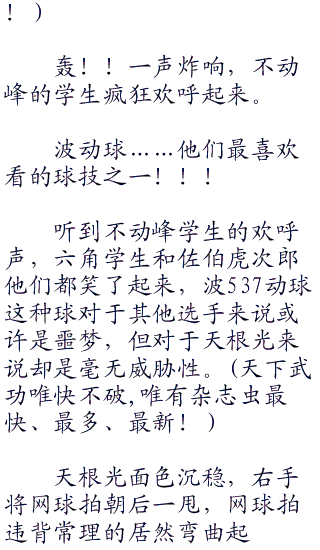 ！）
轰！！一声炸响，不动
峰的学生疯狂欢呼起来。
波动球……他们最喜欢
看的球技之一！！！
听到不动峰学生的欢呼
声，六角学生和佐伯虎次郎
他们都笑了起来，波537动球
这种球对于其他选手来说或
许是噩梦，但对于天根光来
说却是毫无威胁性。(天下武
功唯快不破,唯有杂志虫最
快、最多、最新！)
天根光面色沉稳，右手
将网球拍朝后一甩，网球拍
违背常理的居然弯曲起